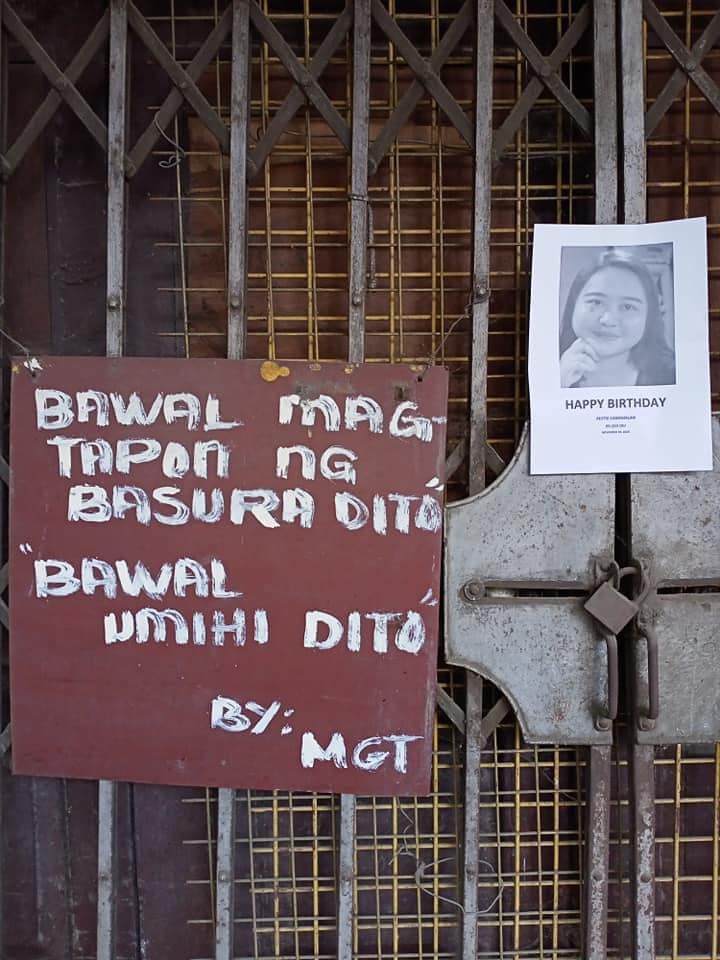 BAWAL MAG-
TAPON NG
BASURA DITO
"BAWAL
UMIHI DITO"
BY:
MGT
HAPPY BIRTHDAY